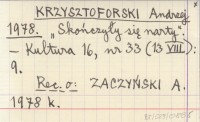 KRZYSZTOFORSKI Andrzej
1978. "Skończyły się narty".
- Kultura 16, nr 33 (13 VIII):
9.
Rec. o: ZACZYŃSKI A.
1978 k.